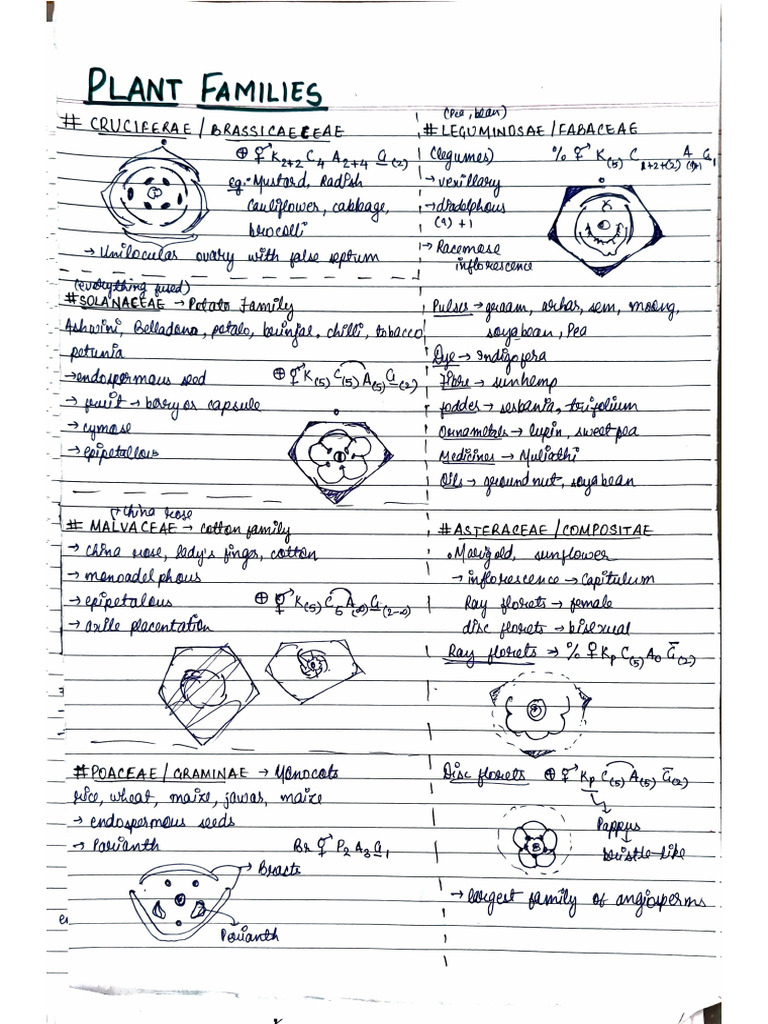 PLANT FAMILIES
# CRUCIFERAE / BRASSICAECEAE
⊕ ⚥ K2+2 C4 A2+4 G(2)
eg:- Mustard, Radish
cauliflower, cabbage,
brocolli
→ Unilocular ovary with false septum
(everything fused)
# SOLANACEAE → Potato Family
Ashwini, Belladona, potato, brinjal, chilli, tobacco,
petunia
→ endospermous seed
⊕ ⚥ K(5) C(5) A(5) G(2)
→ fruit → berry or capsule
→ cymose
→ epipetallous
China rose
# MALVACEAE → cotton family
→ china rose, lady's finger, cotton
→ monoadelphous
→ epipetalous
⊕ ⚥ K(5) C5 A(∞) G(2-∞)
→ axile placentation
# POACEAE / GRAMINAE → Monocots
rice, wheat, maize, jawar, maize
→ endospermous seeds
→ Parianth
Br ⚥ P2 A3 G1
→ Brasts
Parianth
(Pea, bean)
# LEGUMINOSAE / FABACEAE
(legumes) % ⚥ K(5) C1+2+(2) A(9)+1 G1
→ vexillary
→ diadelphous
(9) + 1
→ Racemose
inflorescence
Pulses → graam, arhar, sem, moong,
soyabean, Pea
Dye → Indigofera
Fibre → sunhemp
fodder → sesbania, trifolium
Ornametals → lupin, sweet pea
Medicines → Muliathi
Oils → ground nut, soyabean
# ASTERACEAE / COMPOSITAE
• Marigold, sunflower
→ inflorescence → Capitulum
Ray florets → female
disc florets → bisexual
Ray florets → % ♀ Kp C(5) A0 G̅(2)
Disc florets ⊕ ⚥ Kp C(5) A(5) G̅(2)
Pappus
bristle-like
→ largest family of angiosperms